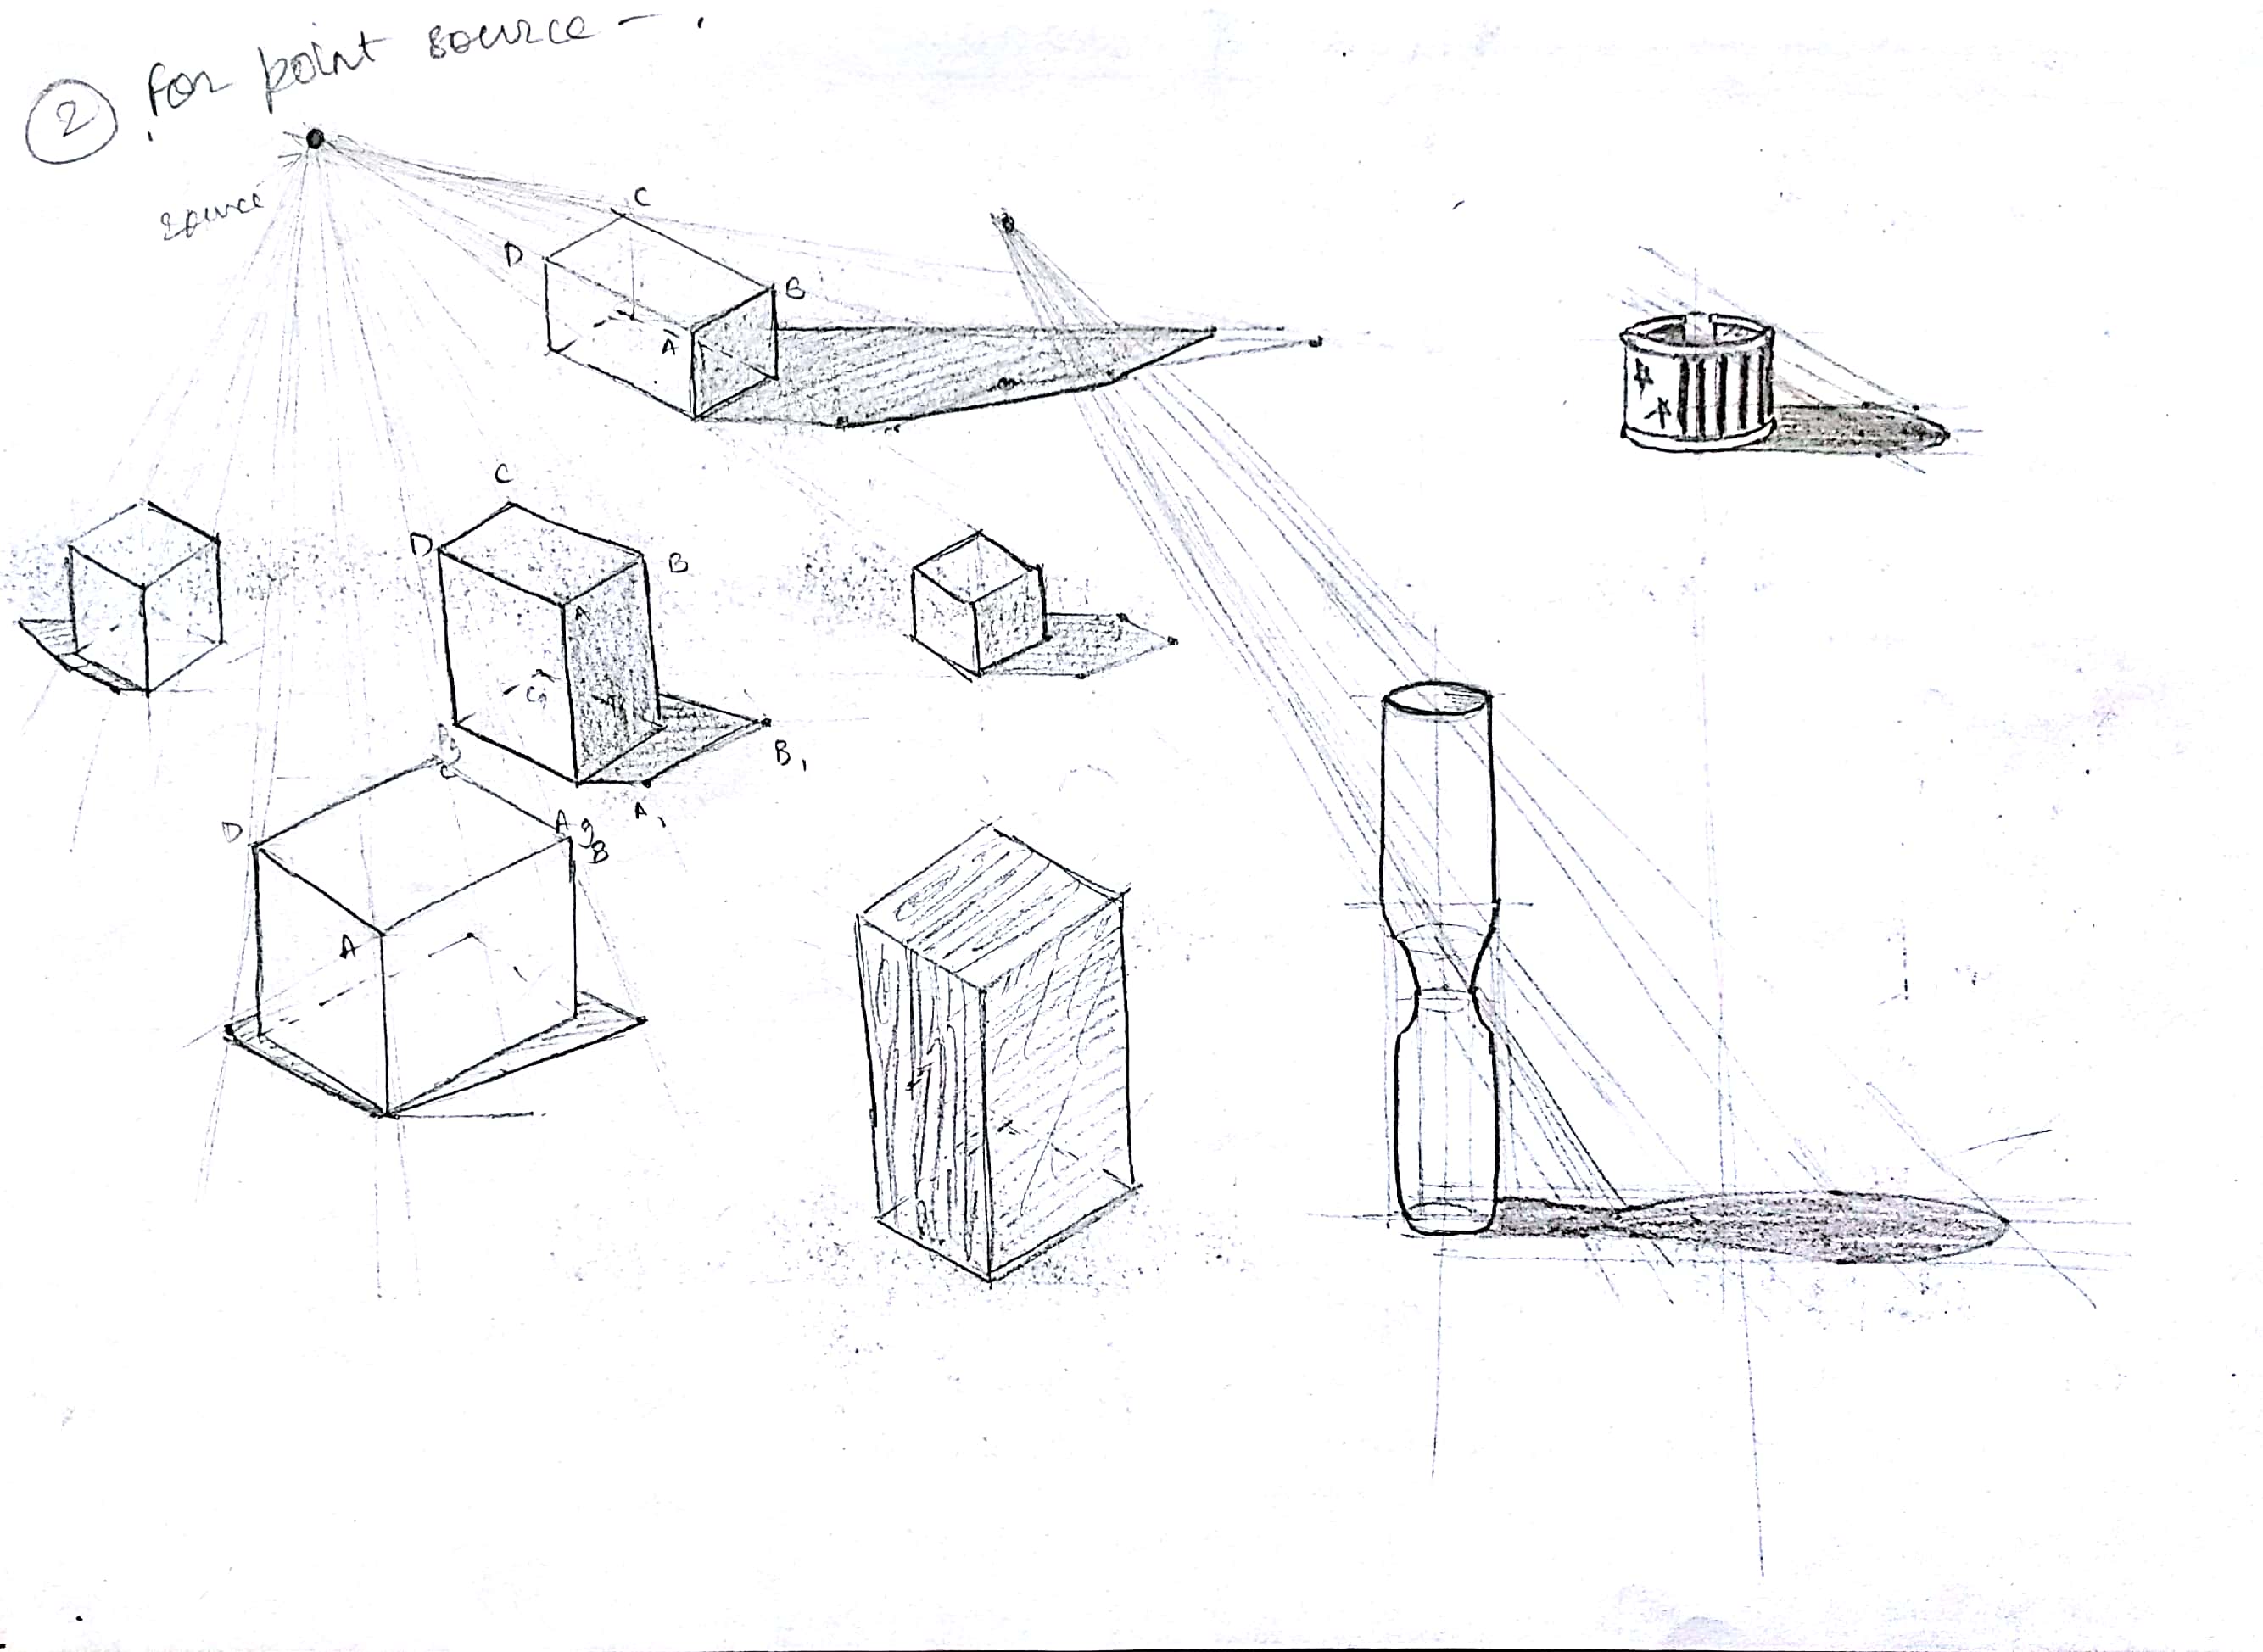 ② For point source -
source
C
D
B
A
C
D
B
A
B₁
A₁
D
A
B
A